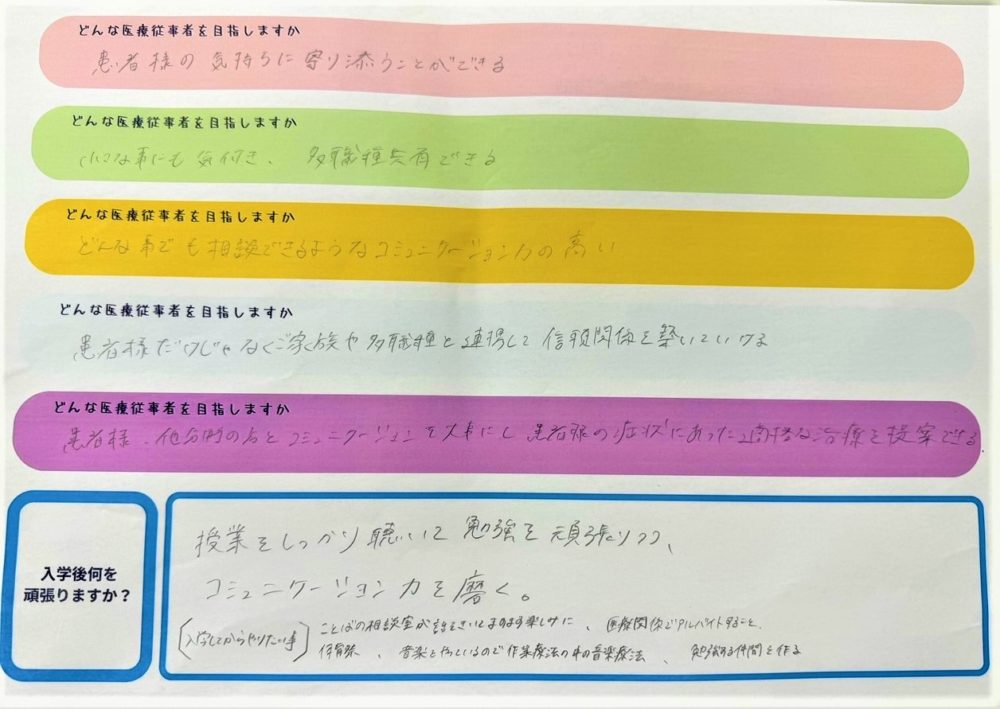 どんな医療従事者を目指しますか
患者様の気持ちに寄り添うことができる
どんな医療従事者を目指しますか
小さな事にも気付き、多職種共有できる
どんな医療従事者を目指しますか
どんな事でも相談できるようなコミュニケーション力の高い
どんな医療従事者を目指しますか
患者様だけじゃなくご家族や多職種と連携して信頼関係を築いていける
どんな医療従事者を目指しますか
患者様、他部門の方とコミュニケーションを大事にし患者様の症状にあった適格な治療を提案できる
入学後何を
頑張りますか？
授業をしっかり聴いて勉強を頑張りつつ、
コミュニケーション力を磨く。
入学してからやりたい事
ことばの相談室が 楽しみに、医療関係でアルバイトすること、
体育祭、音楽をやっているので作業療法の中の音楽療法、勉強する仲間を作る